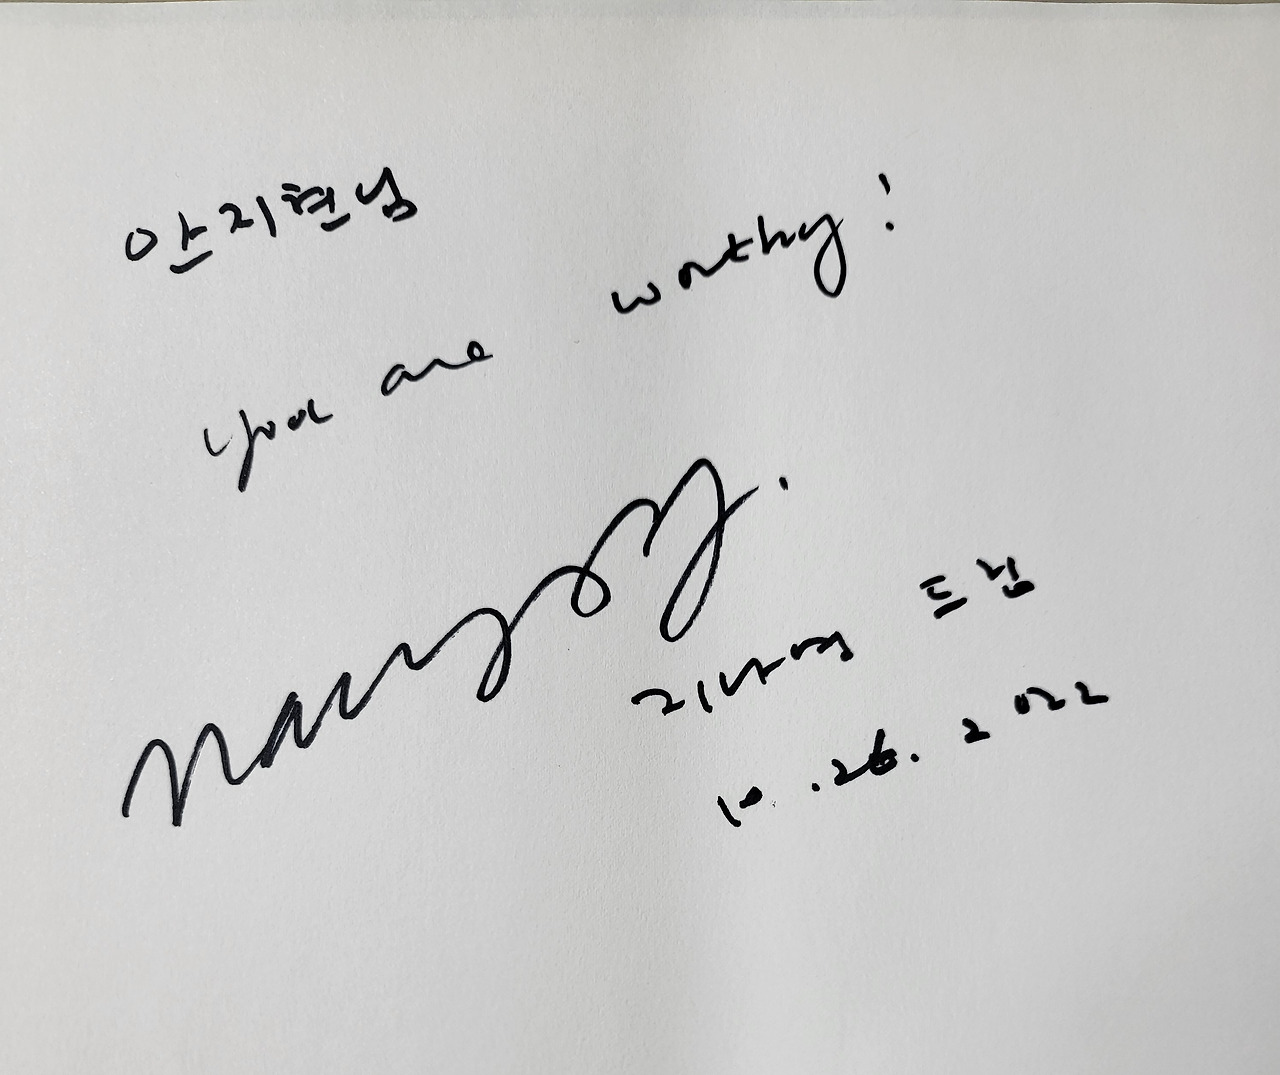 안지현님
you are worthy!
지나영 드림
10.26.2022